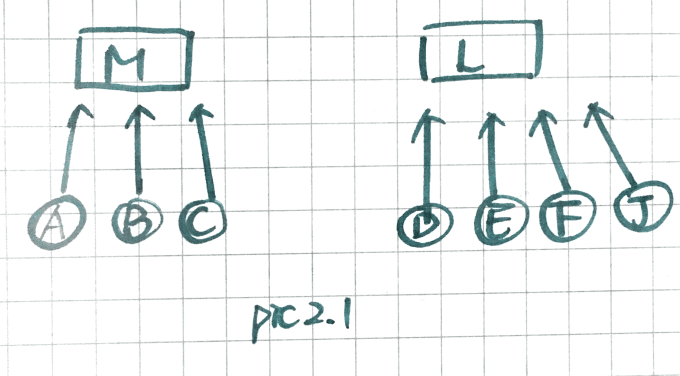 M L
A B C D E F J
pic2.1